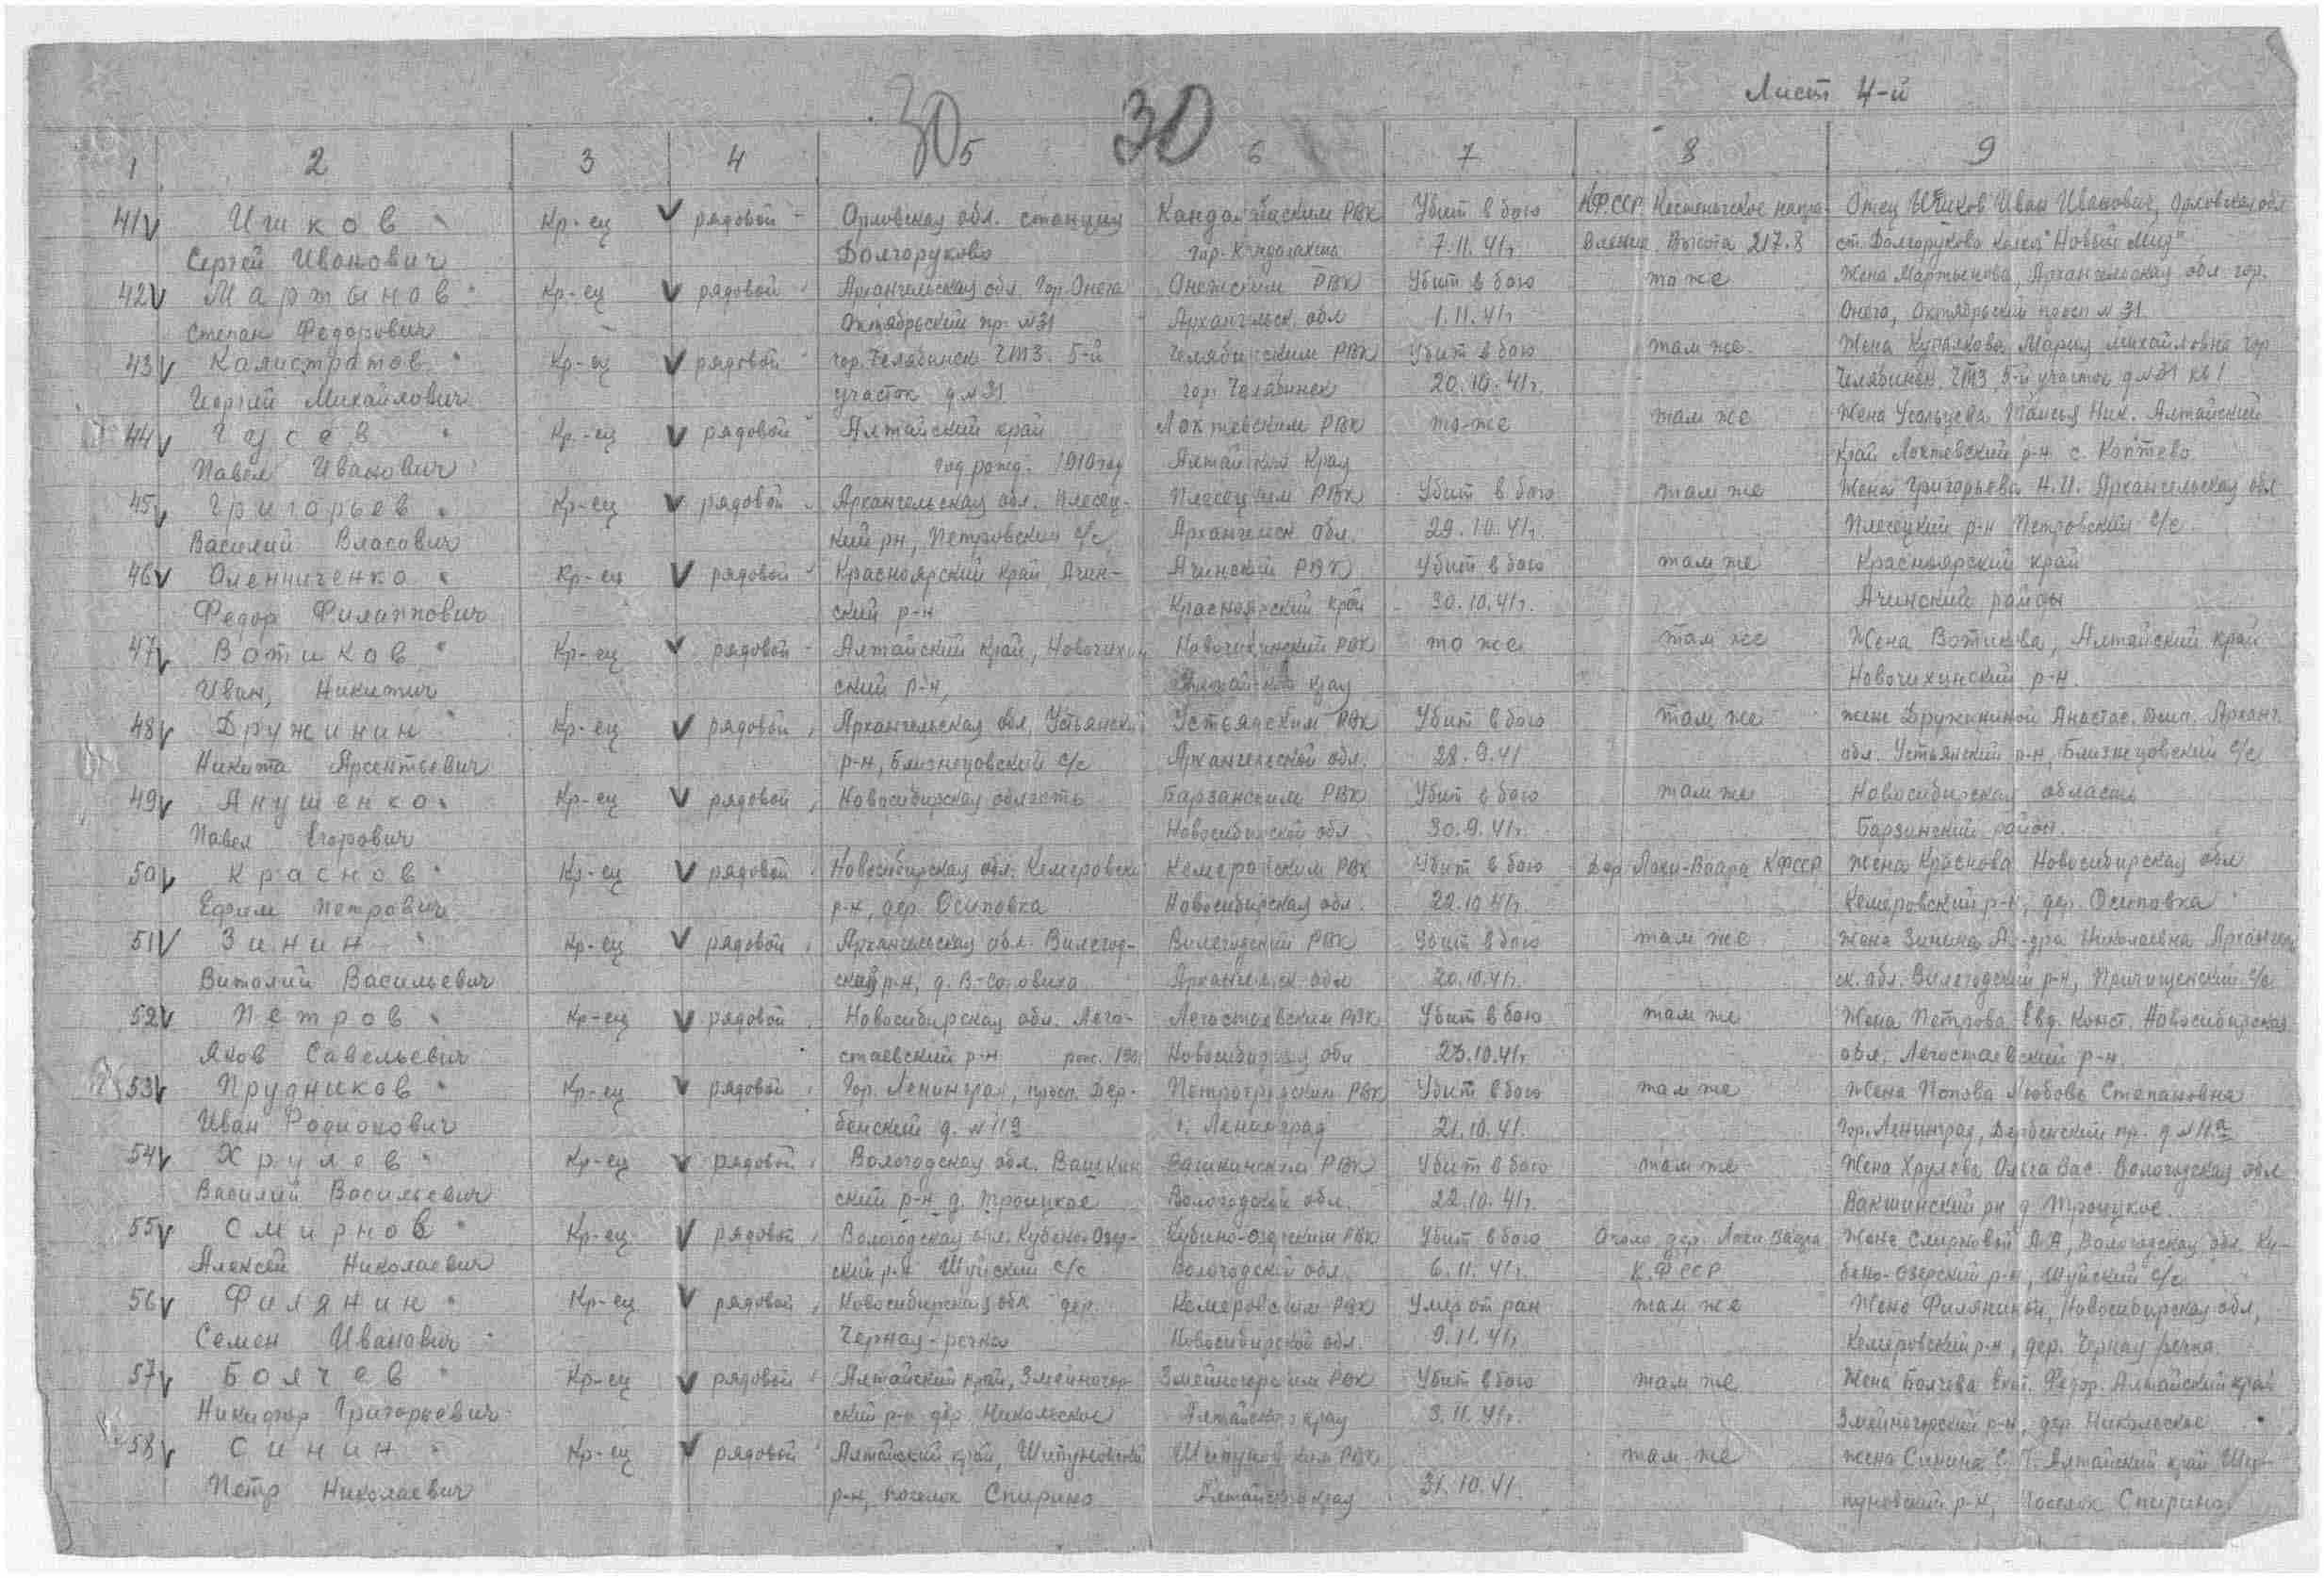 Лист 4-й
30 30
1 2 3 4 5 6 7 8 9
41 Ишков Кр-ец рядовой Орловская обл. станция Кандалакшским РВК Убит в бою КФССР. Кестеньгское напра- Отец Ишков Иван Иванович, Орловская обл
Сергей Иванович Долгоруково гор. Кандалакша 7.11.41г. вление Высота 217.8 ст. Долгоруково колхоз "Новый мир"
42 Мартынов Кр-ец рядовой Архангельская обл. Гор. Онега Онежским РВК Убит в бою то же Жена Мартынова, Архангельская обл гор.
Степан Федорович Октябрьский пр. №31 Архангельск. обл 1.11.41г Онега, Октябрьский просп №31.
43 Калистратов Кр-ец рядовой гор. Челябинск ЧТЗ. 5-й Челябинским РВК Убит в бою там же. Жена Мария Михайловна гор
Георгий Михайлович участок д №31 гор. Челябинск 20.10.41г. Челябинск, ЧТЗ 5-й участок д №31 кв 1
44 Гусев Кр-ец рядовой Алтайский край Локтевским РВК то-же там же Жена Усольцева Таисья Ник. Алтайский
Павел Иванович год рожд. 1910 год Алтайский Край край Локтевский р-н с. Коптево
45 Григорьев Кр-ец рядовой Архангельская обл. Плесец- Плесецким РВК Убит в бою там же Жена Григорьева Н.И. Архангельская обл
Василий Власович кий рн, Петровский с/с Архангельск обл. 29.10.41г. Плесецкий р-н Петровский с/с
46 Оленниченко Кр-ец рядовой Красноярский Край Ачин- Ачинский РВК Убит в бою там же Красноярский край
Федор Филиппович ский р-н Красноярский край 30.10.41г. Ачинский район
47 Вотиков Кр-ец рядовой Алтайский край, Новочихин Новочихинский РВК то же там же Жена Вотикова, Алтайский край
Иван, Никитич ский р-н, Алтайский край Новочихинский р-н.
48 Дружинин Кр-ец рядовой Архангельская обл, Устьянский Устьянским РВК Убит в бою там же жене Дружининой Анастас. Арханг.
Никита Арсентьевич р-н, Близнецовский с/с Архангельской обл. 28.9.41 обл. Устьянский р-н, Близнецовский с/с
49 Анушенко Кр-ец рядовой Новосибирская область Барзанским РВК Убит в бою там же Новосибирская область
Павел Егорович Новосибирской обл 30.9.41г. Барзанский район.
50 Краснов Кр-ец рядовой Новосибирская обл. Кемеровский Кемеровским РВК Убит в бою Дер Лохи-Ваара КФССР Жена Краснова Новосибирская обл
Ефим Петрович р-н, дер. Осиповка Новосибирская обл. 22.10.41г. Кемеровский р-н, дер. Осиповка
51 Зинин Кр-ец рядовой Архангельская обл. Вилегод- Вилегодский РВК Убит в бою там же Жена Зинина Ал-дра Николаевна Архангель
Виталий Васильевич ский р-н, д. Архангельск обл 20.10.41г. ск. обл. Вилегодский р-н, с/с
52 Петров Кр-ец рядовой Новосибирская обл. Лего- Легостаевским РВК Убит в бою там же Жена Петрова Евд. Конст. Новосибирская
Яков Савельевич стаевский р-н Новосибирской обл 23.10.41г обл. Легостаевский р-н.
53 Прудников Кр-ец рядовой Гор. Ленинград, просп. Дер- Петроградским РВК Убит в бою там же Жена Попова Любовь Степановна
Иван Родионович бенский д. г. Ленинград 21.10.41. Гор. Ленинград, Дербенский пр. д
54 Хрулев Кр-ец рядовой Вологодская обл. Вашкин Вашкинским РВК Убит в бою там же Жена Хрулева Ольга Вас. Вологодская обл
Василий Васильевич ский р-н д. Троицкое Вологодской обл. 22.10.41г. Вакшинский рн д Троицкое.
55 Смирнов Кр-ец рядовой Вологодская обл. Кубено-Озер- Кубино-озерским РВК Убит в бою Около дер. Лохи Ваара Жене Смирновой А.А, Вологодская обл. Ку-
Алексей Николаевич ский р-н Шуйский с/с Вологодской обл. 6.11.41г. К.Ф ССР бено-озерский р-н, Шуйский с/с
56 Филянин Кр-ец рядовой Новосибирская обл дер. Кемеровским РВК Умер от ран там же Жене Филяниной, Новосибирская обл,
Семен Иванович Черная-речка Новосибирской обл. 9.11.41г. Кемеровский р-н, дер. Черная речка.
57 Болчев Кр-ец рядовой Алтайский край, Змеиногор Змеиногорским РВК Убит в бою там же Жена Болчева Екат. Федор. Алтайский край
Никифор Григорьевич ский р-н дер. Никольское Алтайского края 3.11.41г. Змеиногорский р-н, дер. Никольское
58 Синин Кр-ец рядовой Алтайский край, Шипуновский Шипуновским РВК там же жена Синина С. Г. Алтайский край Ши-
Петр Николаевич р-н, поселок Спирино Алтайского края 31.10.41. пуновский р-н, поселок Спирино.